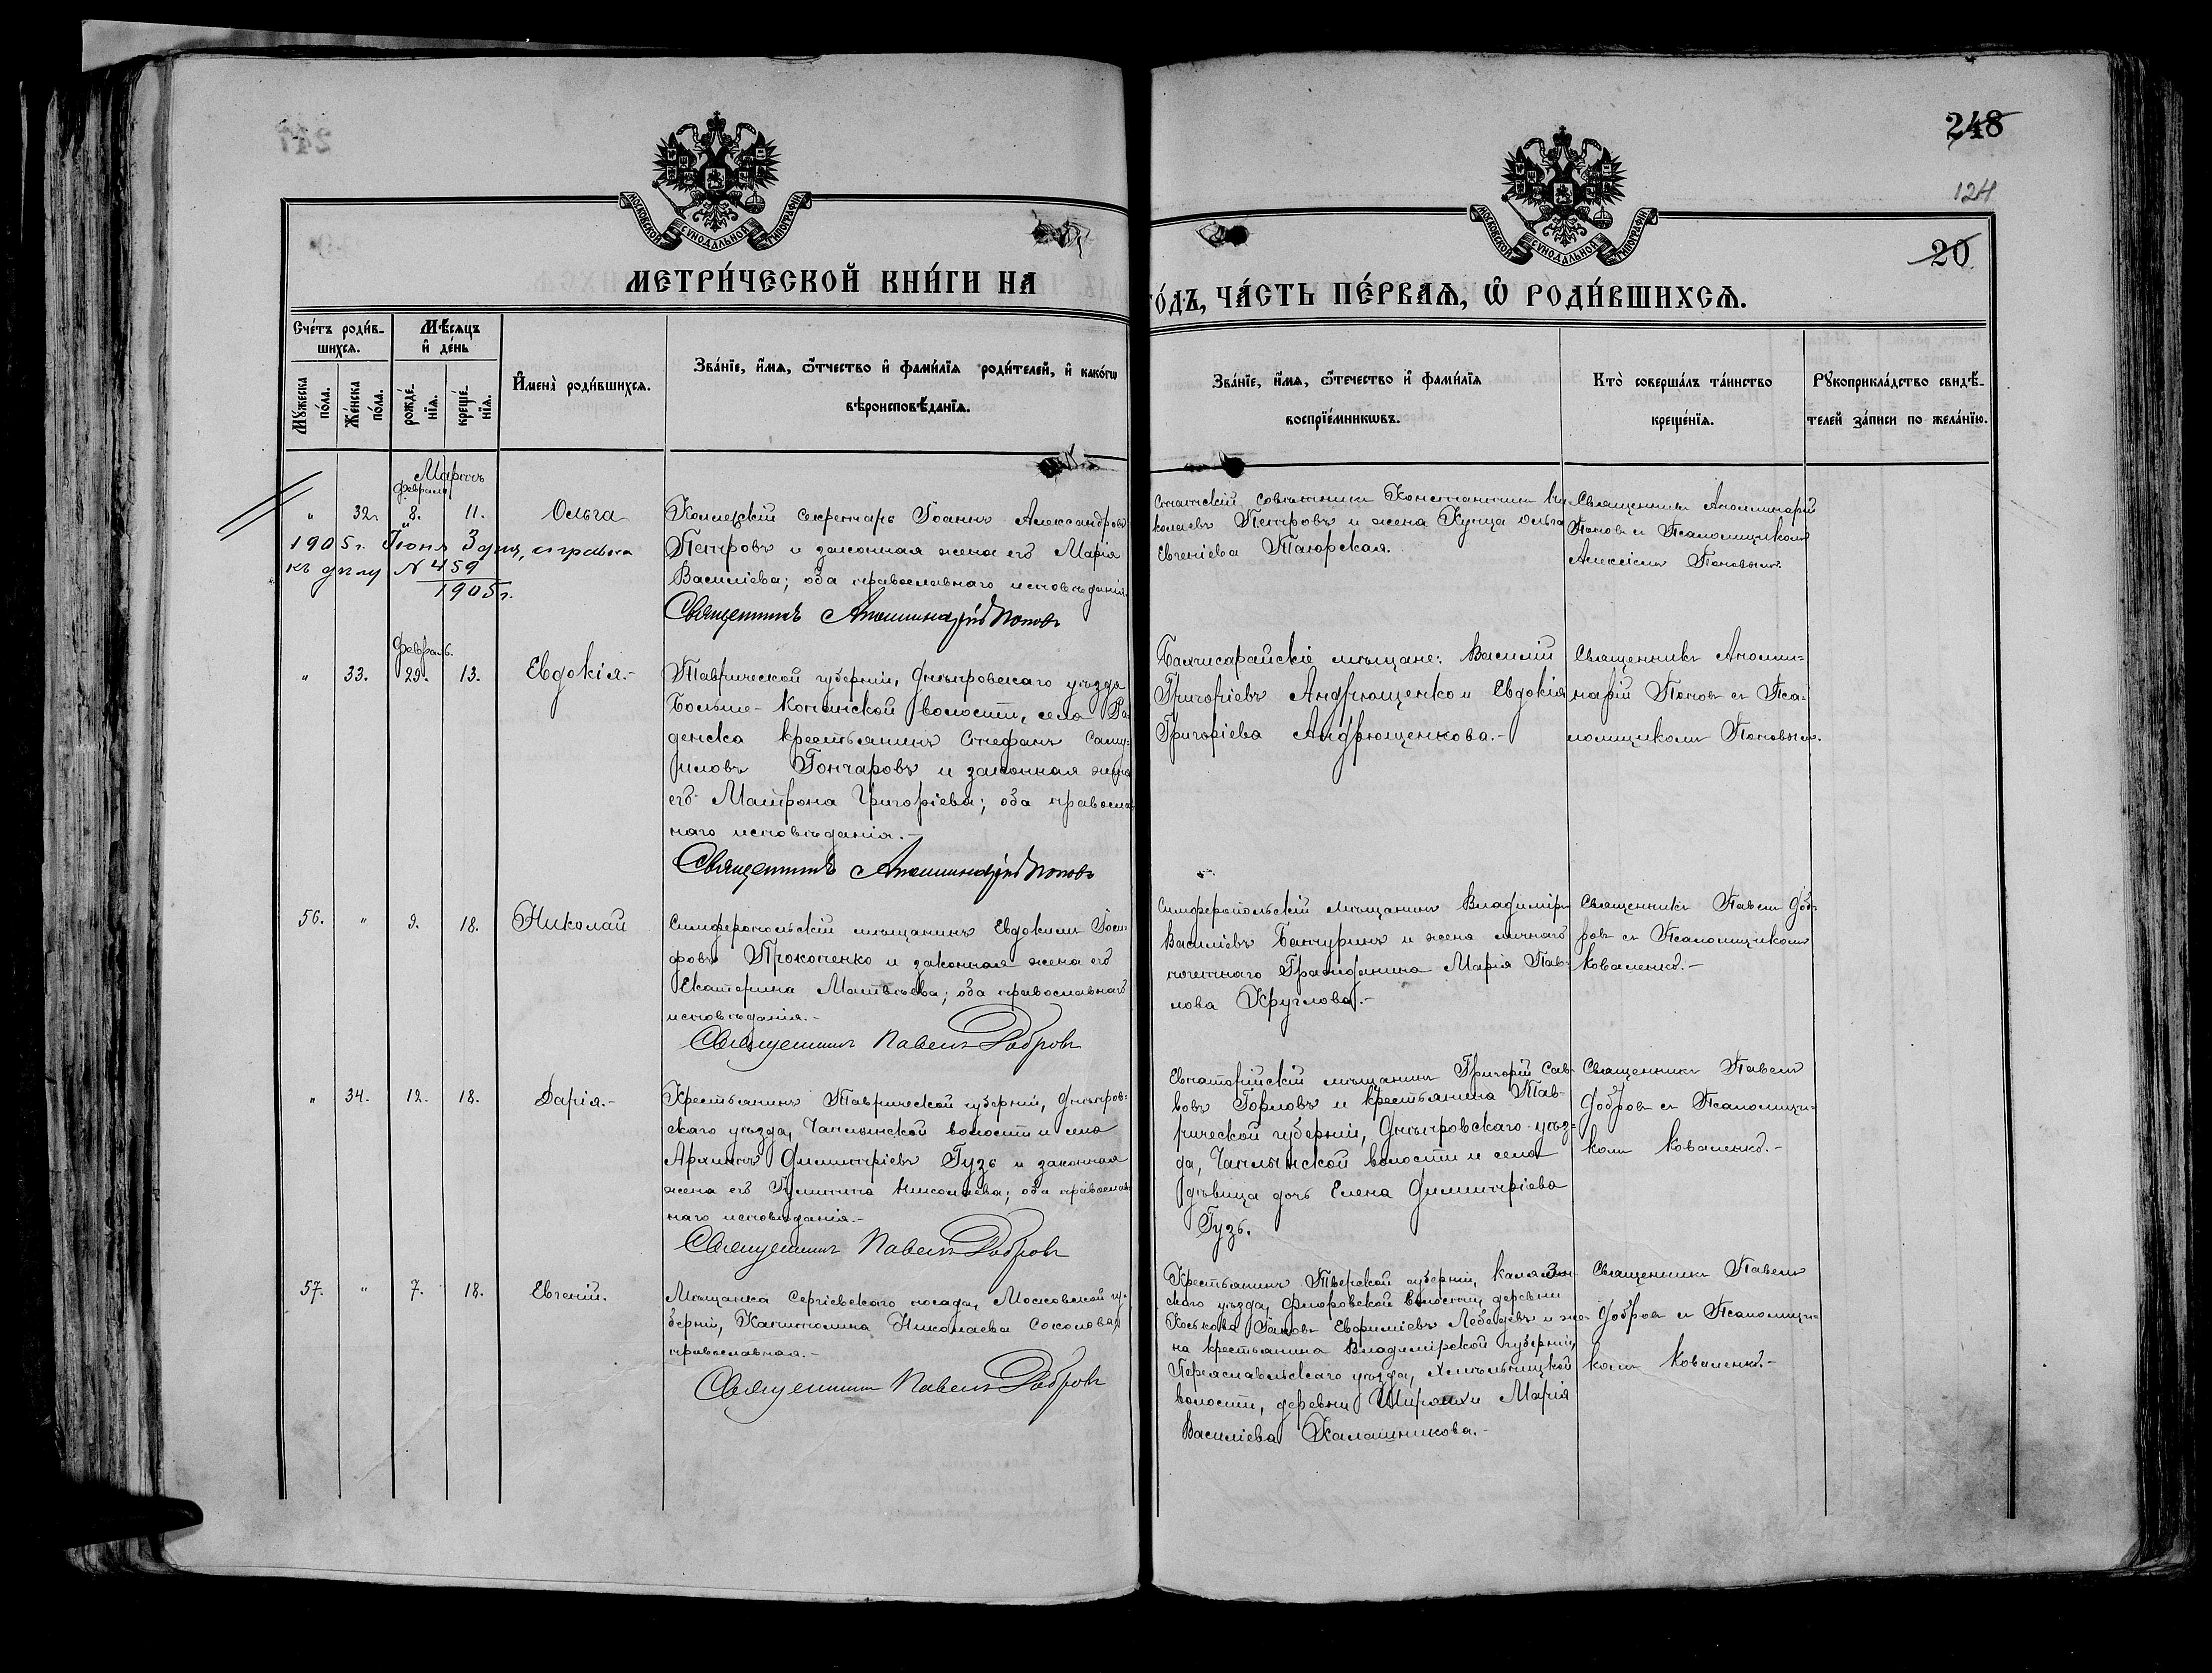 248
124
20
МОСКОВСКОЙ СУНОДАЛЬНОЙ ТИПОГРАФІИ
МОСКОВСКОЙ СУНОДАЛЬНОЙ ТИПОГРАФІИ
МЕТРИ́ЧЕСКОЙ КНИ́ГИ НА
ГО́ДЪ, ЧА́СТЬ ПЕ́РВАѦ, Ѡ҆ РОДИ́ВШИХСѦ.
Сче́тъ роди́в-
шихсѧ.
Мꙋжеска по́ла.
Же́нска по́ла.
Мѣ́сяцъ
и҆ де́нь
рожде́-
нїѧ.
креще́-
нїѧ.
И҆мена̀ роди́вшихсѧ.
Зва́нїе, и҆́мѧ, ѻ҆́тчество и҆ фами́лїѧ роди́телей, и҆ како́гѡ
вѣроисповѣ́данїѧ.
Зва́нїе, и҆́мѧ, ѻ҆́течество и҆ фами́лїѧ
воспрїе́мникѡвъ.
Кто̀ соверша́лъ та́инство
креще́нїѧ.
Рꙋкоприкла́дство свидѣ́-
телей за́писи по жела́нїю.
Мартъ
февраля
" 32. 8. 11. Ольга
1905 г. Іюня 3 дня, справка
къ дѣлу № 459
1905 г.
Коллежскій секретарь Іоаннъ Александровъ
Петровъ и законная жена его Марія
Василіева; оба православнаго исповѣданія.
Священникъ Аполлинарій Поповъ
Статскій совѣтникъ Константинъ Ни-
колаевъ Петровъ и жена Купца Ольга
Евгеніева Таюрская.
Священникъ Аполлинарій
Поповъ съ Псаломщикомъ
Алексіемъ Поповымъ.
Февраль.
" 33. 29. 13. Евдокія.-
Таврической губерніи, Днѣпровскаго уѣзда
Больше-Копанской волости, села Ра-
денска крестьянинъ Стефанъ Саму-
иловъ Гончаровъ и законная жена
его Матрона Григоріева; оба правосла-
наго исповѣданія.-
Священникъ Аполлинарій Поповъ
Бахчисарайскіе мѣщане: Василій
Григоріевъ Андрющенко и Евдокія
Григоріева Андрющенкова.-
Священникъ Аполли-
нарій Поповъ съ Пса-
ломщикомъ Поповымъ.
56. " 9. 18. Николай
Симферопольскій мѣщанинъ Евдокимъ Іоси-
фовъ Прокопенко и законная жена его
Екатерина Матвѣева; оба православнаго
исповѣданія.-
Священникъ Павелъ Добровъ
Симферопольскій мѣщанинъ Владиміръ
Василіевъ Бачуринъ и жена личнаго
почетнаго Гражданина Марія Пав-
лова Круглова.-
Священникъ Павелъ Доб-
ровъ съ Псаломщикомъ
Коваленко.-
" 34. 12. 18. Дарія.-
Крестьянинъ Таврической губерніи, Днѣпров-
скаго уѣзда, Чаплынской волости и села
Архиппъ Димитріевъ Гузь и законная
жена его Іулитта Николаева; оба православ-
наго исповѣданія.-
Священникъ Павелъ Добровъ
Евпаторійскій мѣщанинъ Григорій Сав-
вовъ Горловъ и крестьянина Тав-
рической губерніи, Днѣпровскаго уѣз-
да, Чаплынской волости и села
дѣвица дочь Елена Димитріева
Гузь.
Священникъ Павелъ
Добровъ съ Псаломщи-
комъ Коваленко.-
57. " 7. 18. Евгеній.
Мѣщанка Сергіевскаго посада, Московской гу-
берніи, Капитолина Николаева Соколова,
православная.-
Священникъ Павелъ Добровъ
Крестьянинъ Тверской губерніи, Калязин-
скаго уѣзда, волости, деревни
Коськова Іаковъ Евфиміевъ Лебедевъ и же-
на крестьянина Владимірской губерніи,
Переяславльскаго уѣзда, Хмѣльницкой
волости, деревни Ширяихи Марія
Василіева Калашникова.-
Священникъ Павелъ
Добровъ съ Псаломщи-
комъ Коваленко.-